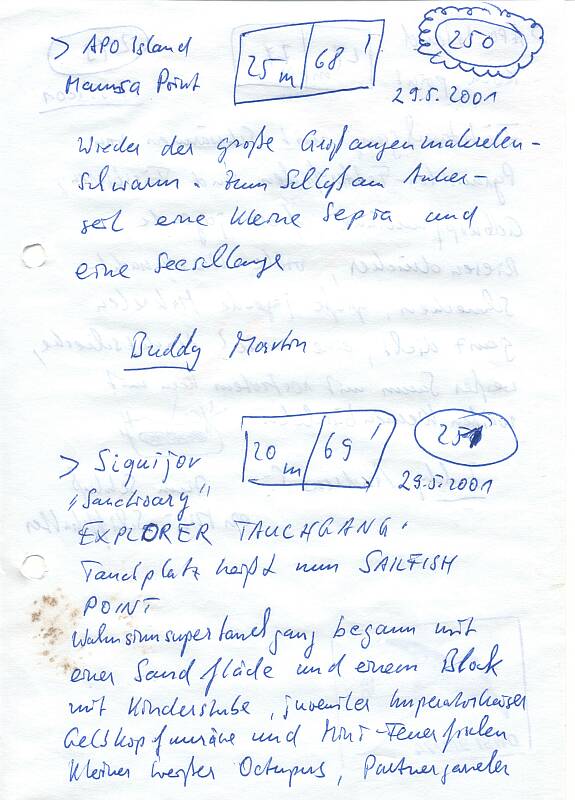 > APO Island
25m 68'
250
Mamsa Point
29.5.2001
Wieder der große Großaugenmakrelen-
schwarm. Zum Schluß am Anker-
seil eine kleine Sepia und
eine Seeschlange
Buddy Martin
20m 69'
251
> Siquijor
29.5.2001
"Sanctuary"
EXPLORER TAUCHGANG!
Tauchplatz heißt nun SAILFISH
POINT
Wahnsinnsupertauchgang begann mit
einer Sandfläche und einem Block
mit Kinderstube, juveniler Imperatorkaiser
Gelbkopfmuräne und Mini-Feuerfischen
Kleiner weißer Octupus, Partnergarnelen